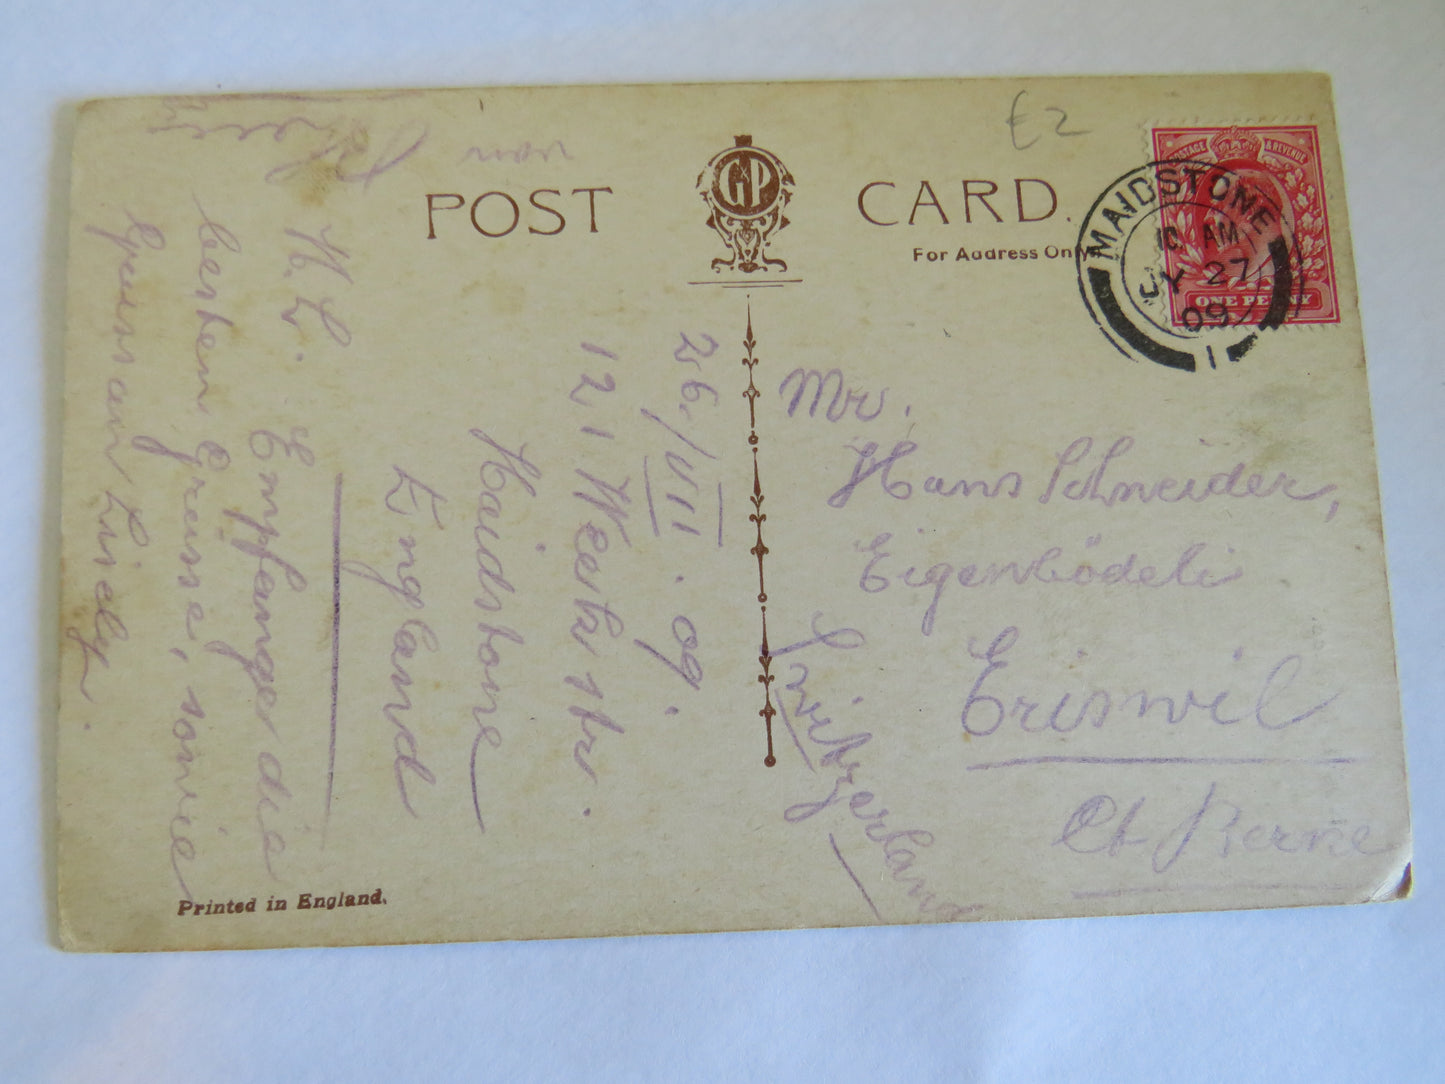 £2
POST CARD.
G P
For Address Only
POSTAGE & REVENUE
ONE PENNY
MAIDSTONE
10 AM
JY 27
09
1
26./VII. 09.
121 Week str.
Maidstone
England
M. L. Empfange die
besten Grüsse, sowie
Gruss an Lisely.
von
Mr.
Hans Schneider,
Eigenbödeli
Eriswil
Ct Berne
Switzerland
Printed in England.